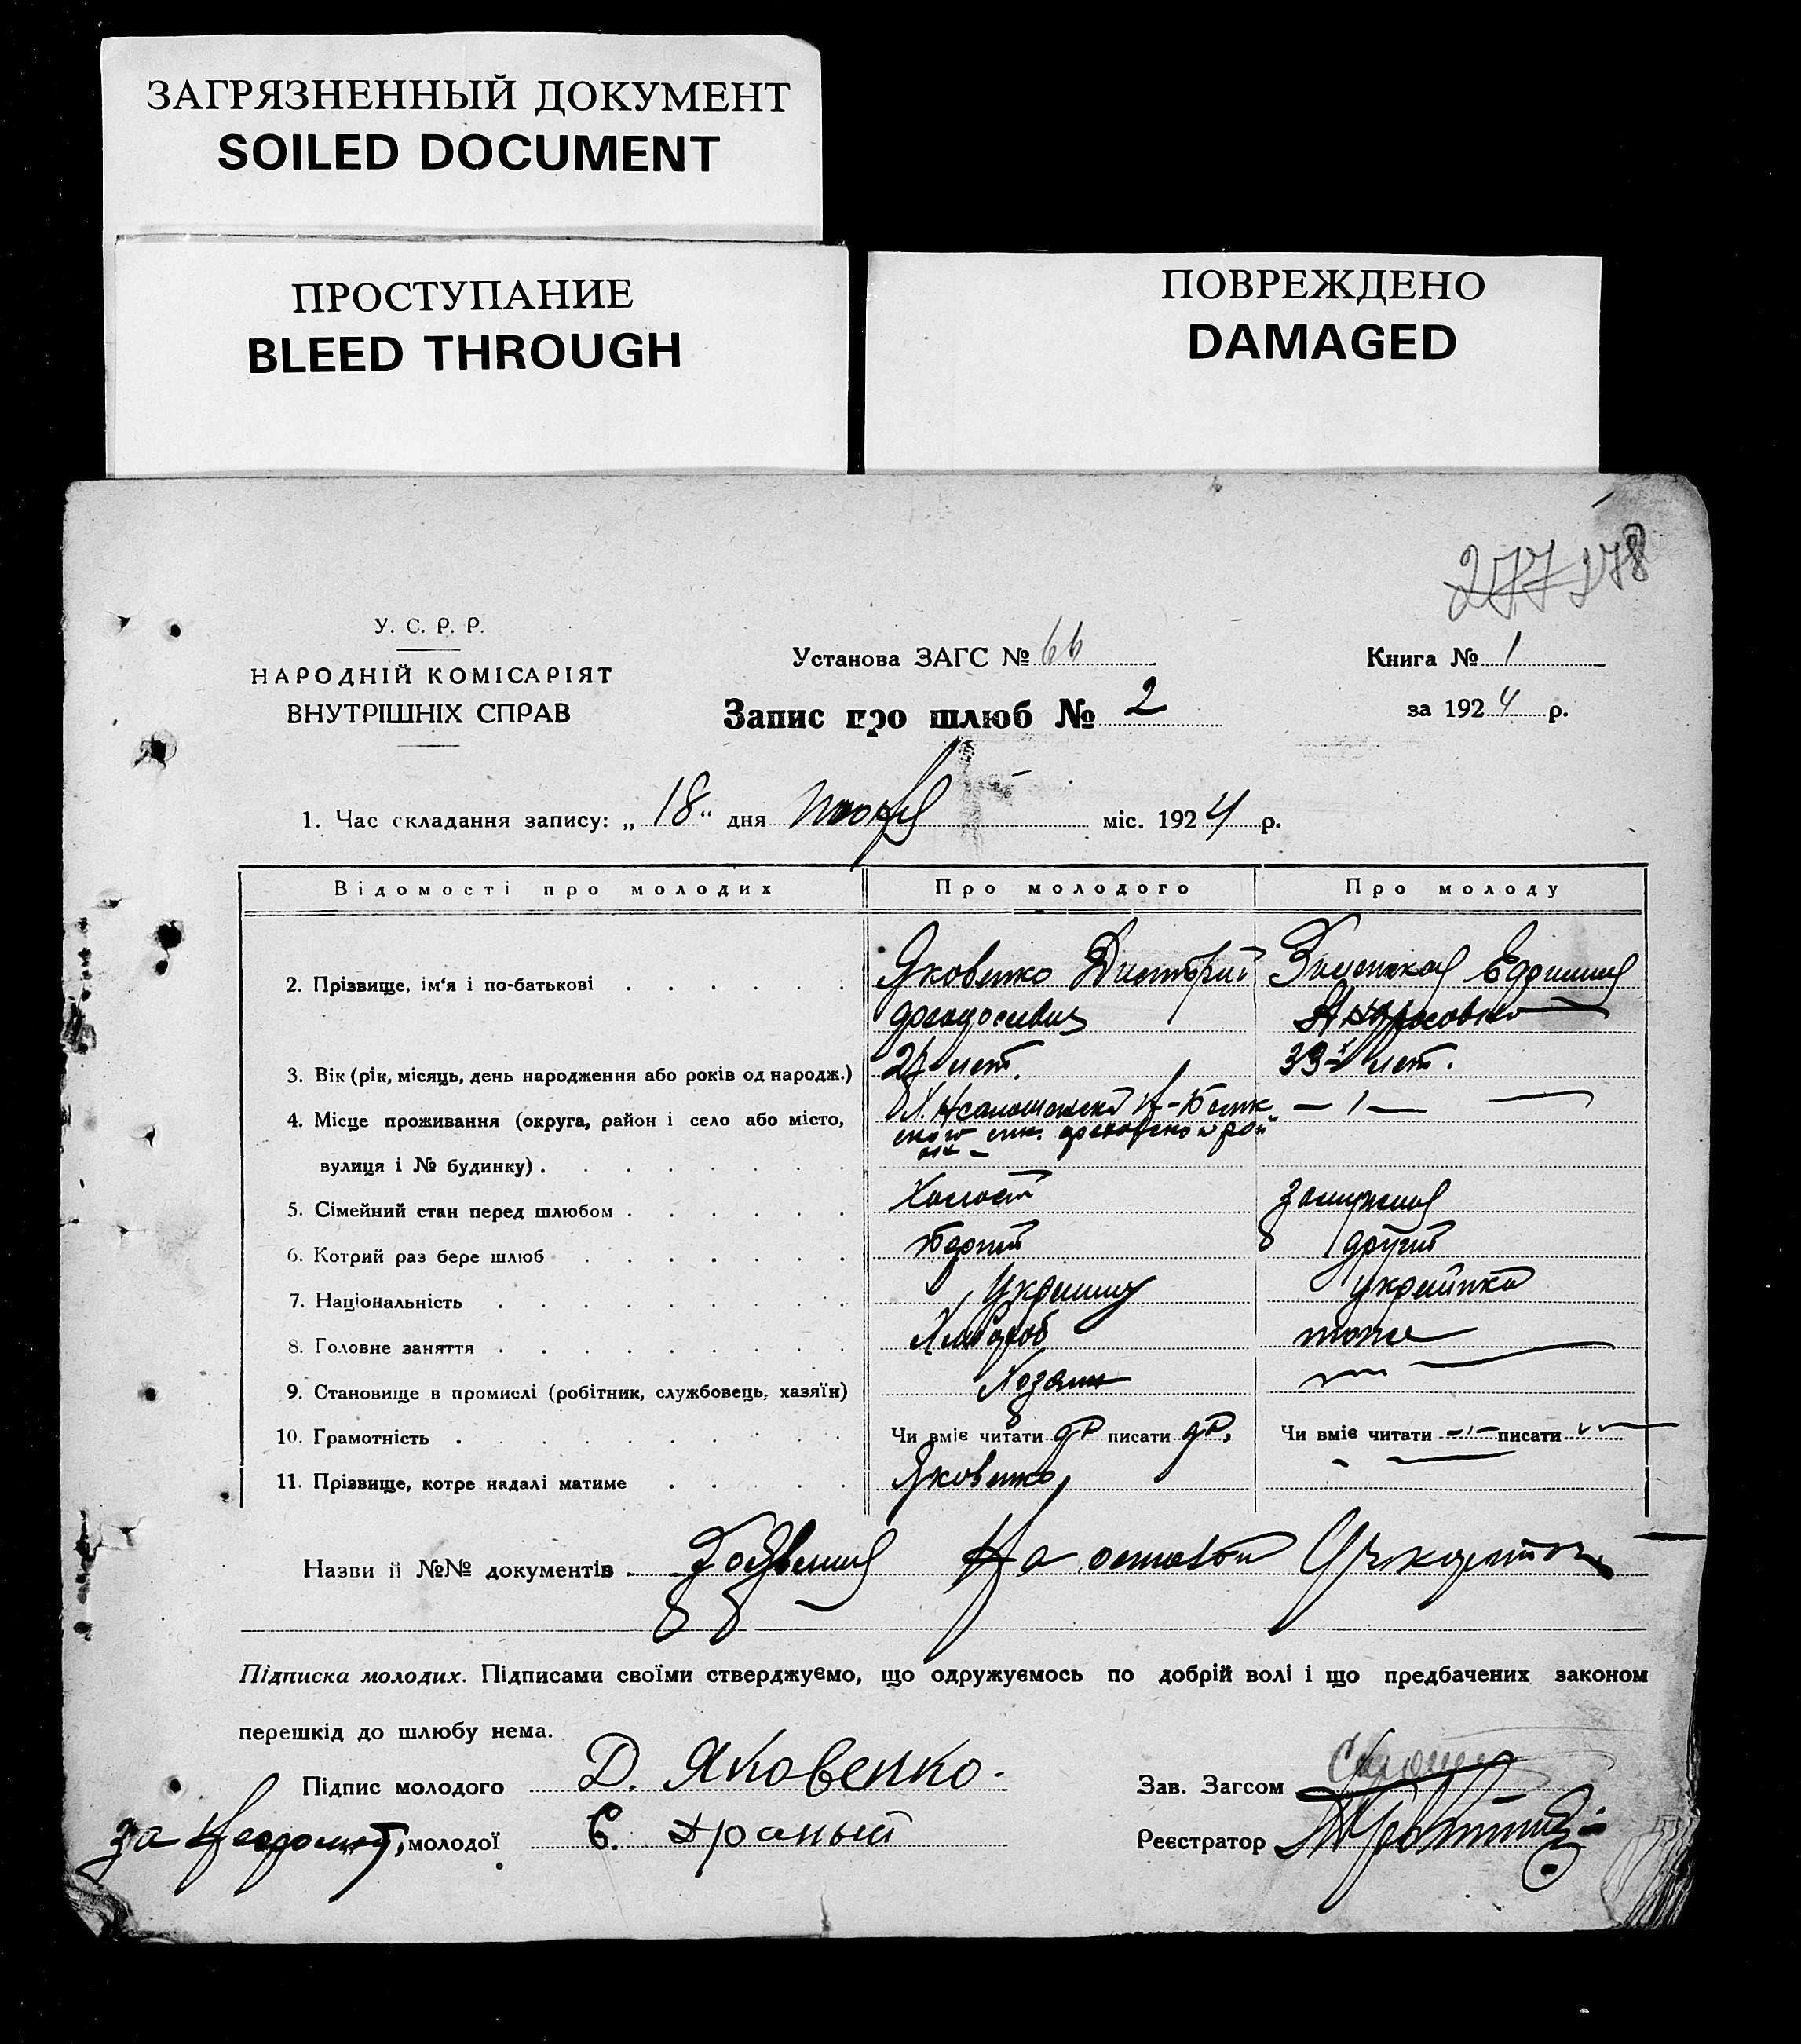 ЗАГРЯЗНЕННЫЙ ДОКУМЕНТ
SOILED DOCUMENT
ПРОСТУПАНИЕ
BLEED THROUGH
ПОВРЕЖДЕНО
DAMAGED
277 178
У. С. Р. Р.
НАРОДНІЙ КОМІСАРІЯТ
ВНУТРІШНІХ СПРАВ
Установа ЗАГС № 66
Запис про шлюб № 2
Книга № 1
за 1924 р.
1. Час складання запису: „ 18 “ дня міс. 1924 р.
Відомості про молодих
Про молодого
Про молоду
2. Прізвище, ім'я і по-батькові . . . . . .
Яковенко Дмитрий
3. Вік (рік, місяць, день народження або років од народж.)
лет.
лет.
4. Місце проживання (округа, район і село або місто,
вулиця і № будинку) . . . . . . .
5. Сімейний стан перед шлюбом . . . . . .
Холост
замужняя
6. Котрий раз бере шлюб . . . . . .
Первий
другий
7. Національність . . . . . . . .
Украинец
украинка
8. Головне заняття . . . . . . . .
Хлебороб
тоже
9. Становище в промислі (робітник, службовець, хазяїн)
Хозяин
10. Грамотність . . . . . . . . .
Чи вміє читати да писати да,
Чи вміє читати —〃— писати
11. Прізвище, котре надалі матиме . . . . .
Яковенко,
Назви ii №№ документів
Підписка молодих. Підписами своїми стверджуємо, що одружуємось по добрій волі і що предбачених законом
перешкід до шлюбу нема.
Підпис молодого Д. Яковенко.
за неграмот, молодої Є. Драный
Зав. Загсом
Реєстратор